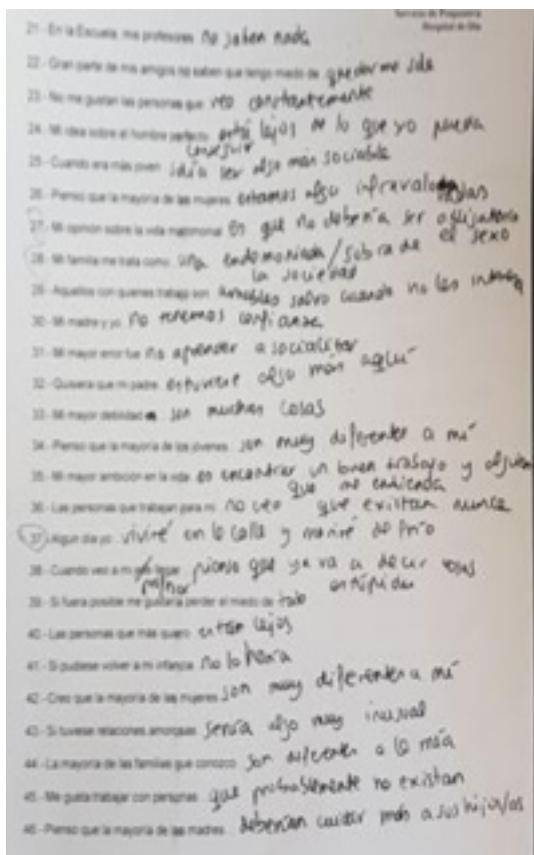 Servicio de Psiquiatría
Hospital de Día
21 - En la Escuela, mis profesores no saben nada
22 - Gran parte de mis amigos no saben que tengo miedo de quedarme sola
23 - No me gustan las personas que veo constantemente
24 - Mi idea sobre el hombre perfecto está lejos de lo que yo pueda
conseguir
25 - Cuando era más joven solía ser algo más sociable
26 - Pienso que la mayoría de las mujeres estamos algo infravaloradas
27 - Mi opinión sobre la vida matrimonial es que no debería ser obligatorio
el sexo
28 - Mi familia me trata como una endemoniada / sobra de
la sociedad
29 - Aquellos con quienes trabajo son amables salvo cuando no les interesa
30 - Mi madre y yo no tenemos confianza
31 - Mi mayor error fue no aprender a socializar
32 - Quisiera que mi padre estuviese algo más aquí
33 - Mi mayor debilidad son muchas cosas
34 - Pienso que la mayoría de los jóvenes son muy diferentes a mí
35 - Mi mayor ambición en la vida es encontrar un buen trabajo y alguien
que me entienda
36 - Las personas que trabajan para mí no veo que existan nunca
37 - Algún día yo viviré en la calle y moriré de frío
38 - Cuando veo a mi pienso que ya va a decir
estúpida
39 - Si fuera posible me gustaría perder el miedo de todo
40 - Las personas que más quiero están lejos
41 - Si pudiese volver a mi infancia no lo haría
42 - Creo que la mayoría de las mujeres son muy diferentes a mí
43 - Si tuviese relaciones amorosas sería algo muy inusual
44 - La mayoría de las familias que conozco son diferentes a la mía
45 - Me gusta trabajar con personas que probablemente no existan
46 - Pienso que la mayoría de las madres deberían cuidar más a sus hijos/as